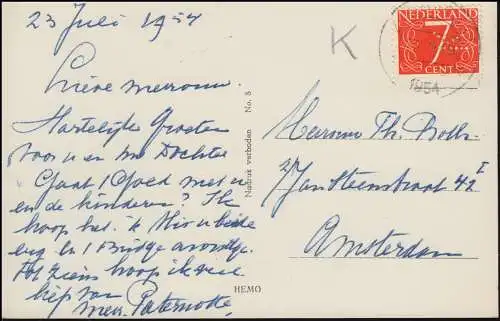 23 Juli 1954
Lieve mevrouw.
Hartelijke Groeten
voor u en uw Dochter
Gaat 't Goed met u
en de kinderen? Ik
hoop het. ik Hier
erg 1 Bridge avondje.
Tot ziens hoop ik veel
liefs van
mevr. Paternotte
Nadruk verboden No. 5
HEMO
K
NEDERLAND
7
CENT
1954
Mevrouw Th. Bolle
Jan Steenstraat 42 I
Amsterdam